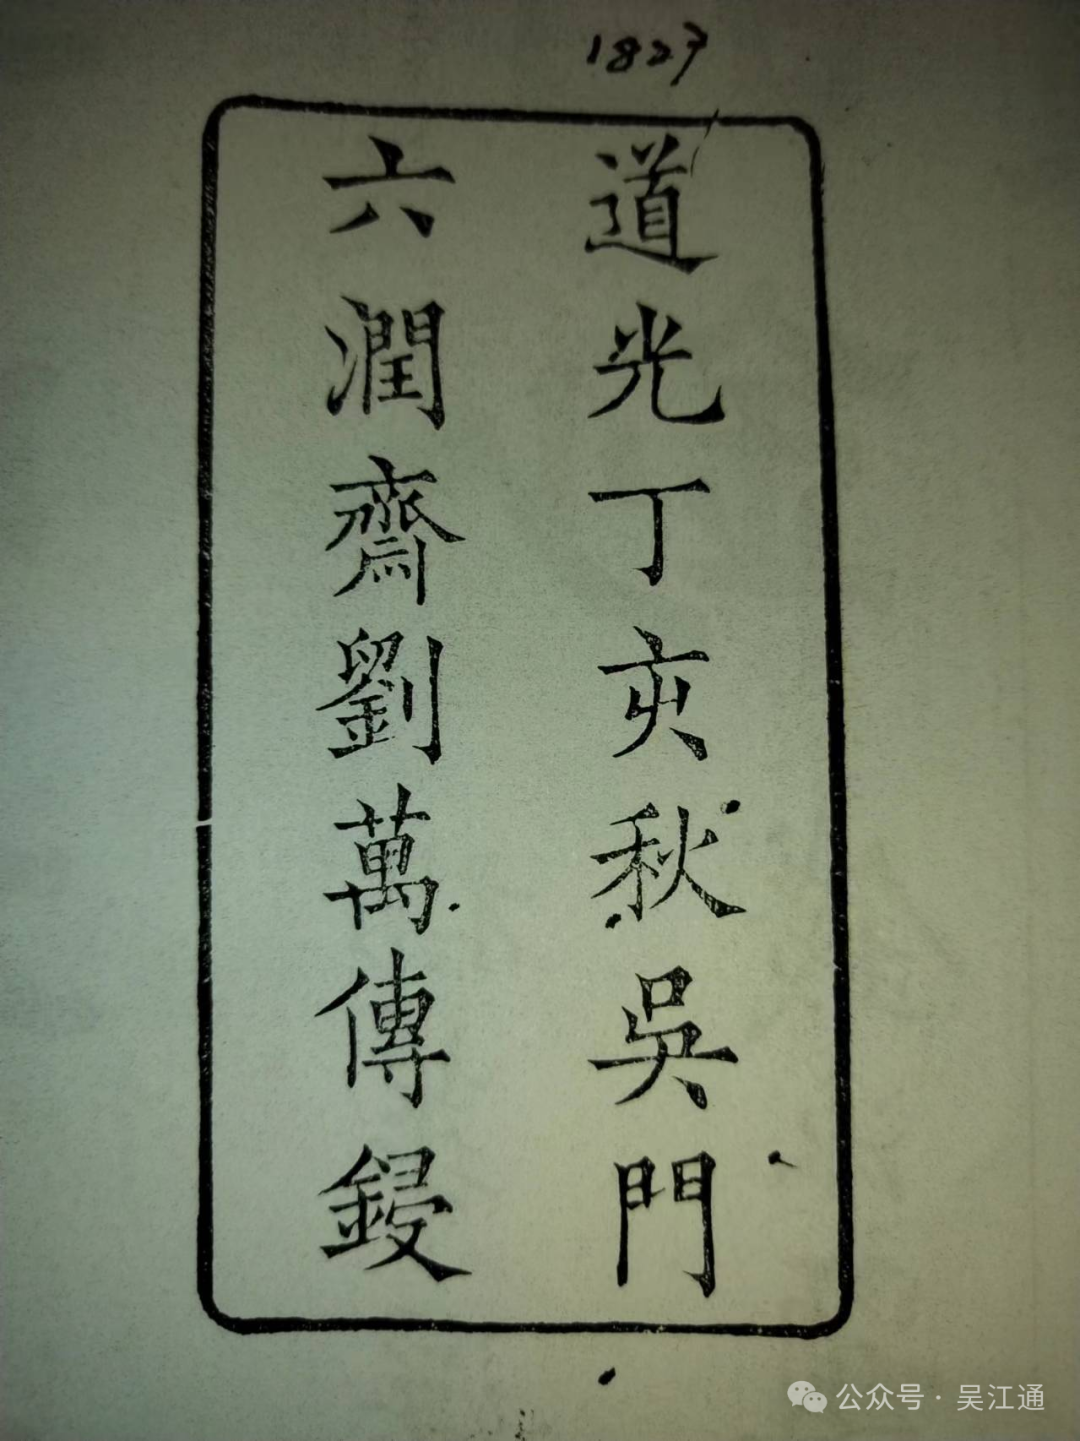 1827
道光丁亥秋吳門
六潤齋劉萬傳鋟
公众号·吴江通